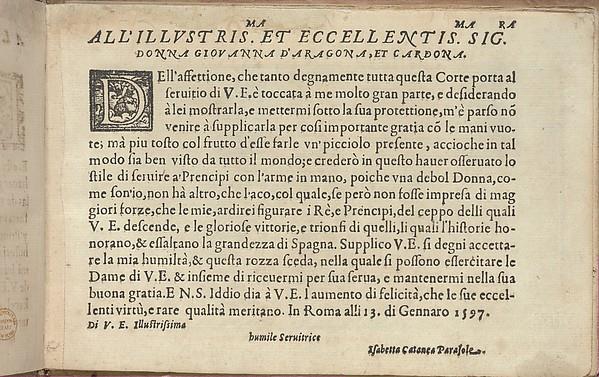 ALL'ILLVSTRIS.MA ET ECCELLENTIS.MA SIG.RA
DONNA GIOVANNA D'ARAGONA, ET CARDONA.
DEll'affettione, che tanto degnamente tutta questa Corte porta al
seruitio di V. E. è toccata à me molto gran parte, e desiderando
à lei mostrarla, e mettermi sotto la sua protettione, m'è parso nõ
venire à supplicarla per così importante gratia cõ le mani vuo-
te; mà piu tosto col frutto d'esse farle vn'picciolo presente, accioche in tal
modo sia ben visto da tutto il mondo; e crederò in questo hauer osseruato lo
stile di seruire a'Prencipi con l'arme in mano, poiche vna debol Donna, co-
me son'io, non hà altro, che l'aco, col quale, se però non fosse impresa di mag
giori forze, che le mie, ardirei figurare i Rè, e Prencipi, del ceppo delli quali
V. E. descende, e le gloriose vittorie, e trionfi di quelli, li quali l'historie ho-
norano, & essaltano la grandezza di Spagna. Supplico V.E. si degni accetta-
re la mia humiltà, & questa rozza sceda, nella quale si possono essercitare le
Dame di V.E. & insieme di riceuermi per sua serua, e mantenermi nella sua
buona gratia. E N. S. Iddio dia à V.E. l'aumento di felicità, che le sue eccel-
lenti virtù, e rare qualità meritano. In Roma alli 13. di Gennaro 1597.
Di V. E. Illustrissima
humile Seruitrice
Isabetta Catanea Parasole.